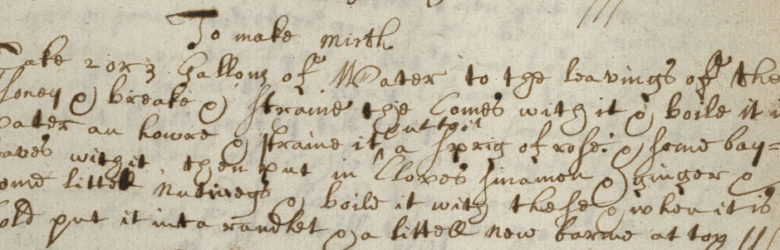 To make mirth
Take 2 or 3 gallons of Water to the leavings of the
honey & breake & straine the Comes with it & boile it i
water an howre & straine it, put thr a sprig of rose: & some bay=
eaves with it then put in Cloves sinamon & ginger &
some littell nutmegs & boile it with these & when it is
Cold put it into a randlet & a littell new barme at top